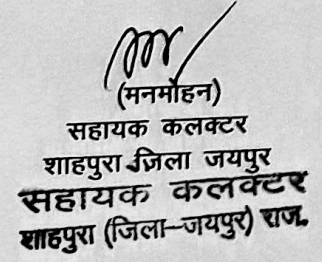 (मनमोहन)
सहायक कलक्टर
शाहपुरा जिला जयपुर
सहायक कलक्टर
शाहपुरा (जिला-जयपुर) राज.